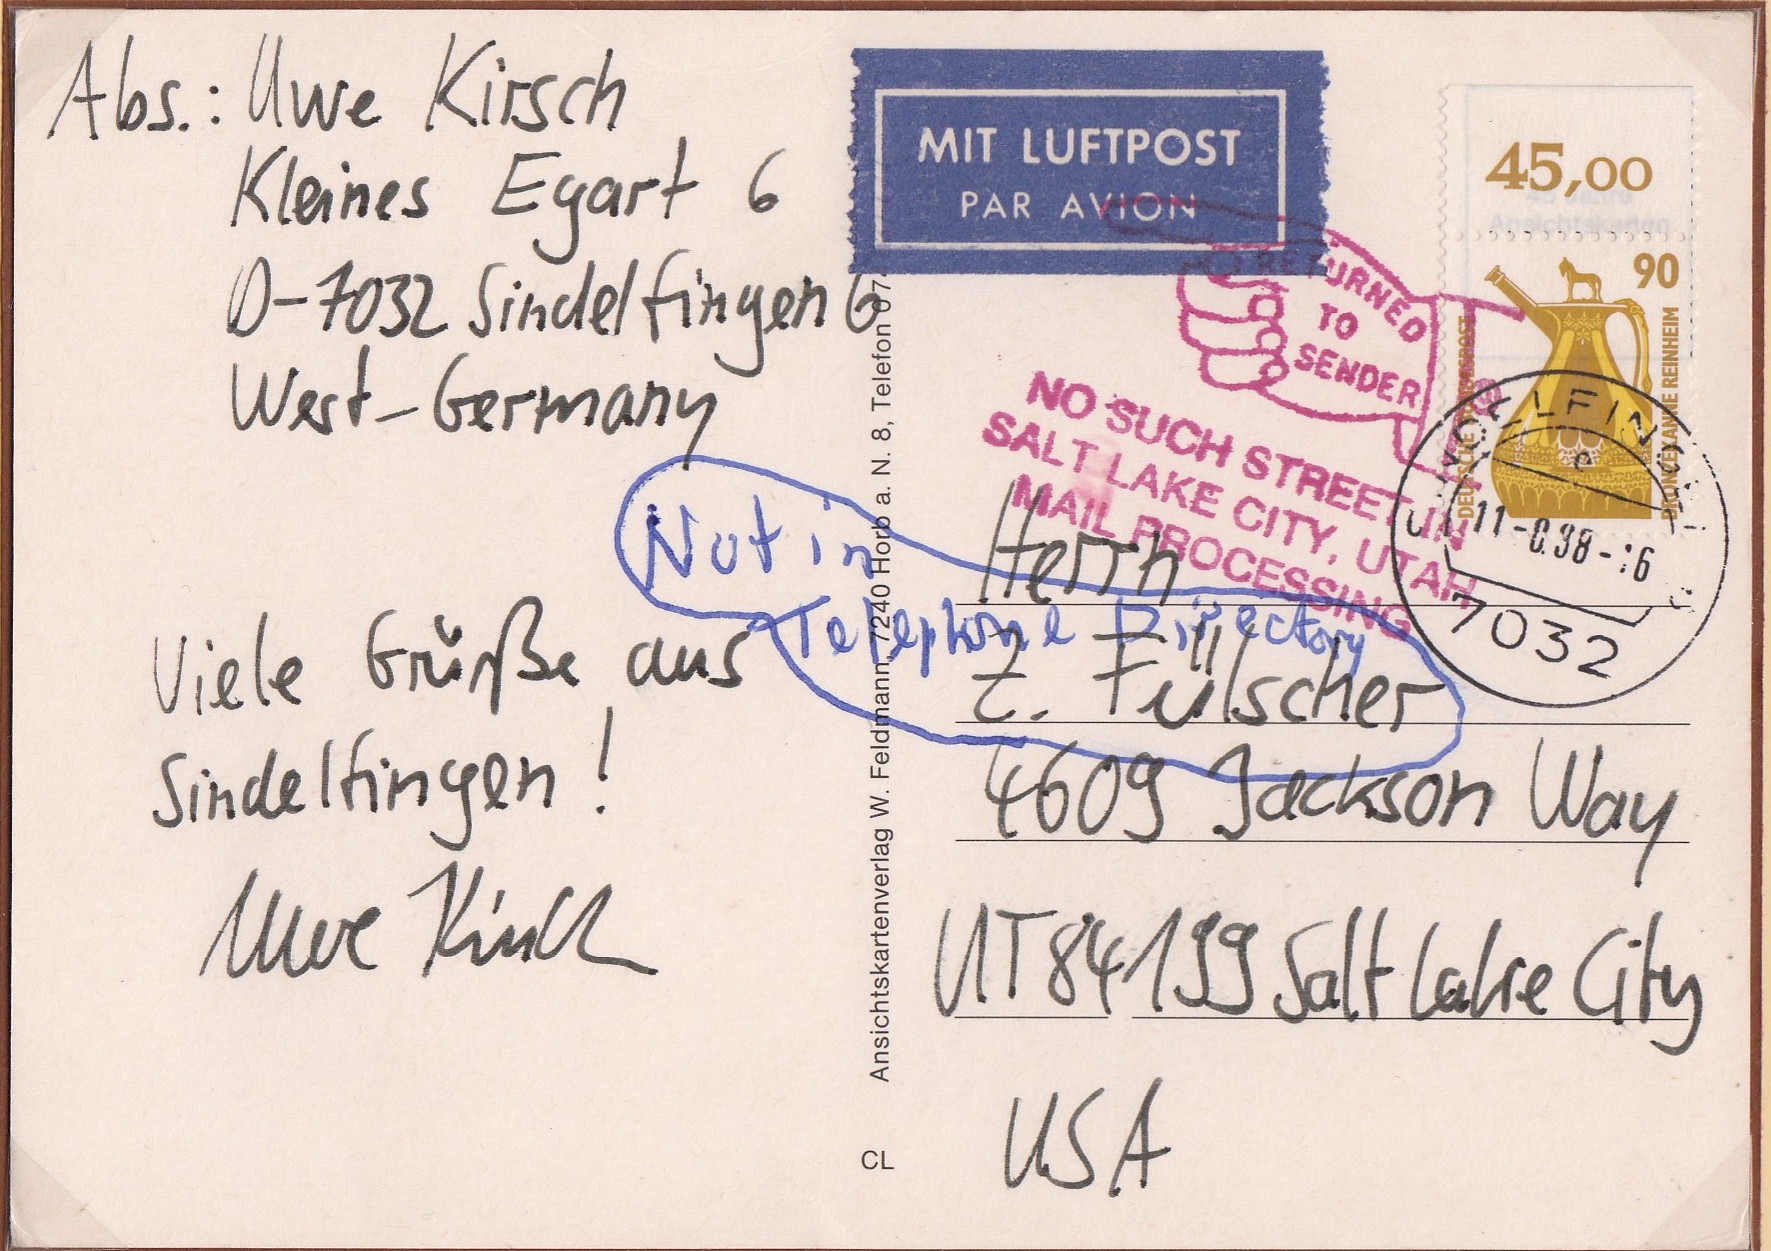 Abs.: Uwe Kirsch
Kleines Egart 6
D-7032 Sindelfingen 6
West-Germany
Viele Grüße aus
Sindelfingen!
Uwe Kirsch
Ansichtskartenverlag W. Feldmann, 7240 Horb a. N. 8, Telefon 07
CL
MIT LUFTPOST
PAR AVION
45,00
90
DEUTSCHE BUNDESPOST
BRONZEKANNE REINHEIM
RETURNED
TO
SENDER
NO SUCH STREET IN
SALT LAKE CITY, UTAH
MAIL PROCESSING
SINDELFINGEN
e
7032
Not in
Telephone Directory
Herrn
Z. Fülscher
4609 Jackson Way
UT 84199 Salt Lake City
USA